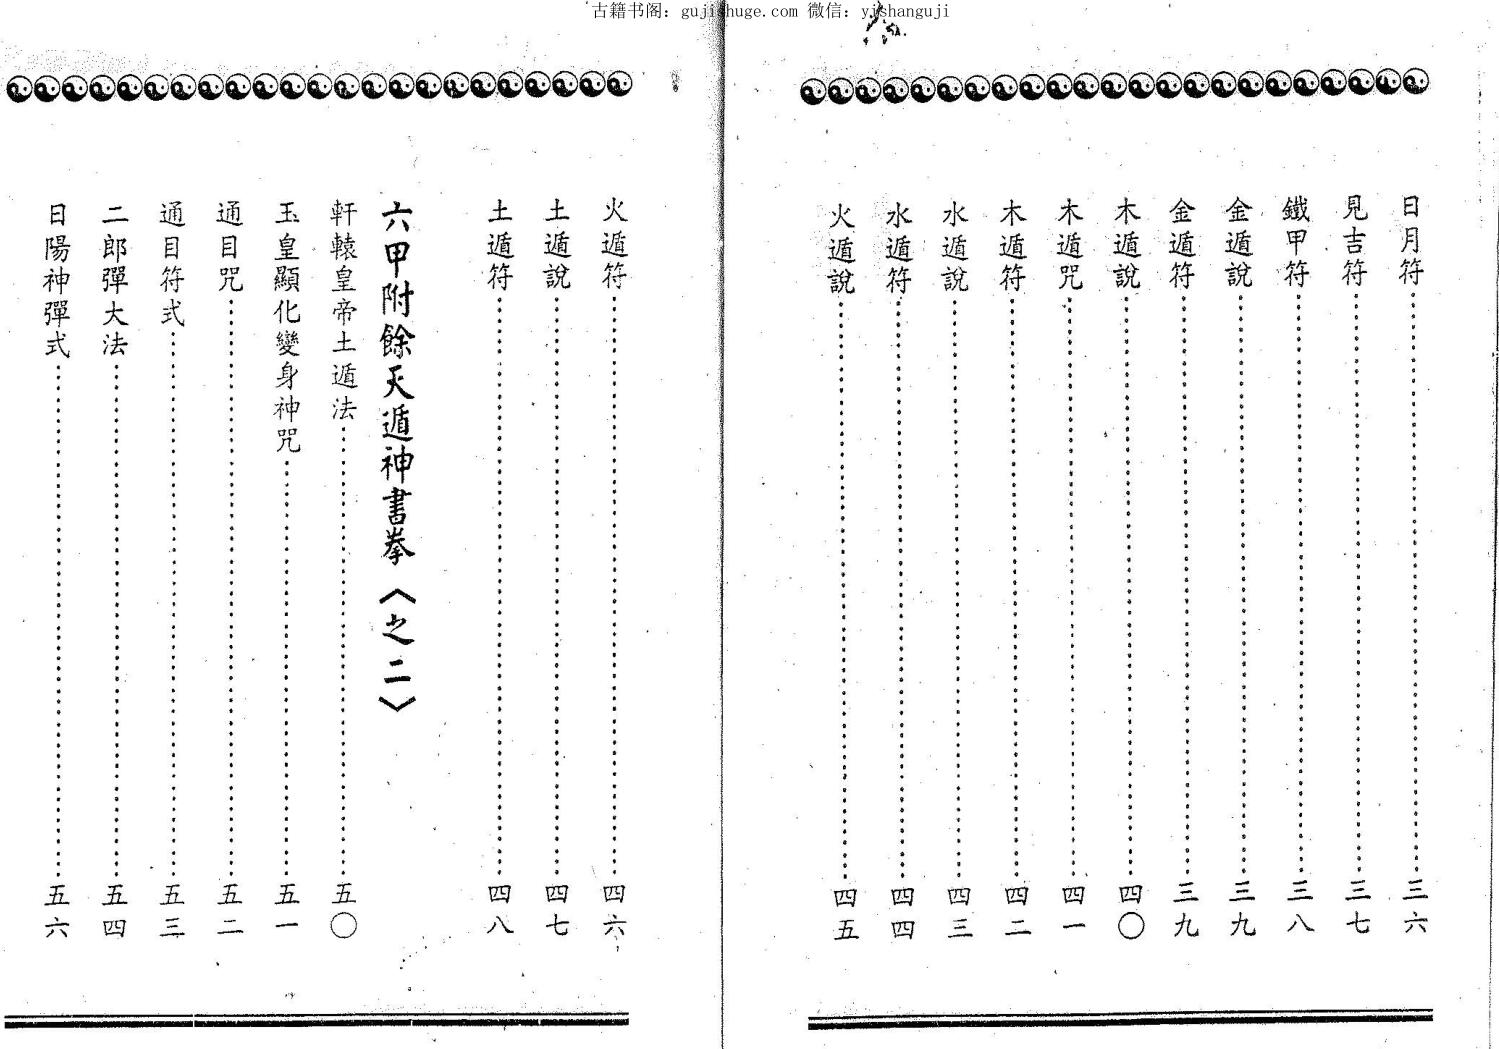 古籍书阁：gujishuge.com 微信：yjshanguji
日月符……三六
見吉符……三七
鐵甲符……三八
金遁說……三九
金遁符……三九
木遁說……四〇
木遁咒……四一
木遁符……四二
水遁說……四三
水遁符……四四
火遁說……四五
火遁符……四六
土遁說……四七
土遁符……四八
六甲附餘天遁神書拳〈之二〉
軒轅皇帝土遁法……五〇
玉皇顯化變身神咒……五一
通目咒……五二
通目符式……五三
二郎彈大法……五四
日陽神彈式……五六